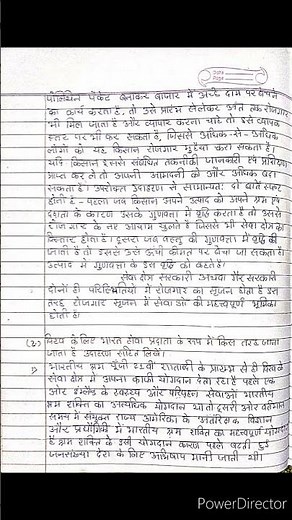 Date
Page
पॉलिथिन पैकेट बनाकर बाजार में अच्छे दाम पर बेचने
का कार्य करता है, तो उसे प्रारंभ से लेकर अंत तक रोजगार
भी मिल जाता है और व्यापार करना चाहे तो इसे व्यापक
स्तर पर भी कर सकता है, जिससे अधिक-से-अधिक
लोगों को यह किसान रोजगार मुहैया करा सकता है।
यदि किसान इससे संबंधित तकनीकी जानकारी एवं प्रशिक्षण
प्राप्त कर ले तो अपनी आमदनी को और अधिक बढ़ा
सकता है। उपरोक्त उदाहरण से सामान्यतः दो बातें स्पष्ट
होती है - पहला जब किसान अपने उत्पाद को अपने श्रम एवं
दक्षता के कारण उसके गुणवत्ता में वृद्धि करता है तो उससे
रोजगार के नए आयाम खुलते हैं जिससे भी सेवा क्षेत्र का
विस्तार होता है। दूसरा जब वस्तु की गुणवत्ता में वृद्धि की
जाती है तो इससे उसे ऊंची कीमत पर बेचा जा सकता है।
उत्पाद में गुणवत्ता के इस वृद्धि को कहते हैं।
सेवा क्षेत्र सरकारी अथवा गैर सरकारी
दोनों ही परिस्थितियों में रोजगार का सृजन होता है इस
तरह रोजगार सृजन में सेवाओं की महत्वपूर्ण भूमिका
होती है।
विश्व के लिए भारत सेवा प्रदाता के रूप में किस तरह जाना
जाता है उदाहरण सहित लिखें।
भारतीय श्रम पूँजी 21वीं शताब्दी के प्रारम्भ से ही विश्व के
सेवा क्षेत्र में अपना काफी योगदान देता रहा है पहले एक
ओर इंग्लैंड के स्वास्थ्य और परिवहन सेवाओं भारतीय
श्रम शक्ति का अत्यधिक योगदान था तो दूसरी ओर वर्तमान
समय में संयुक्त राज्य अमेरिका के अंतरिक्ष विज्ञान
और प्रयोगिकी में भारतीय श्रम शक्ति का महत्वपूर्ण योगदान
है श्रम शक्ति के इसी योगदान कारण पहले बढ़ती हुई
जनसंख्या देश के लिए अभिशाप मानी जाती थी।
PowerDirector